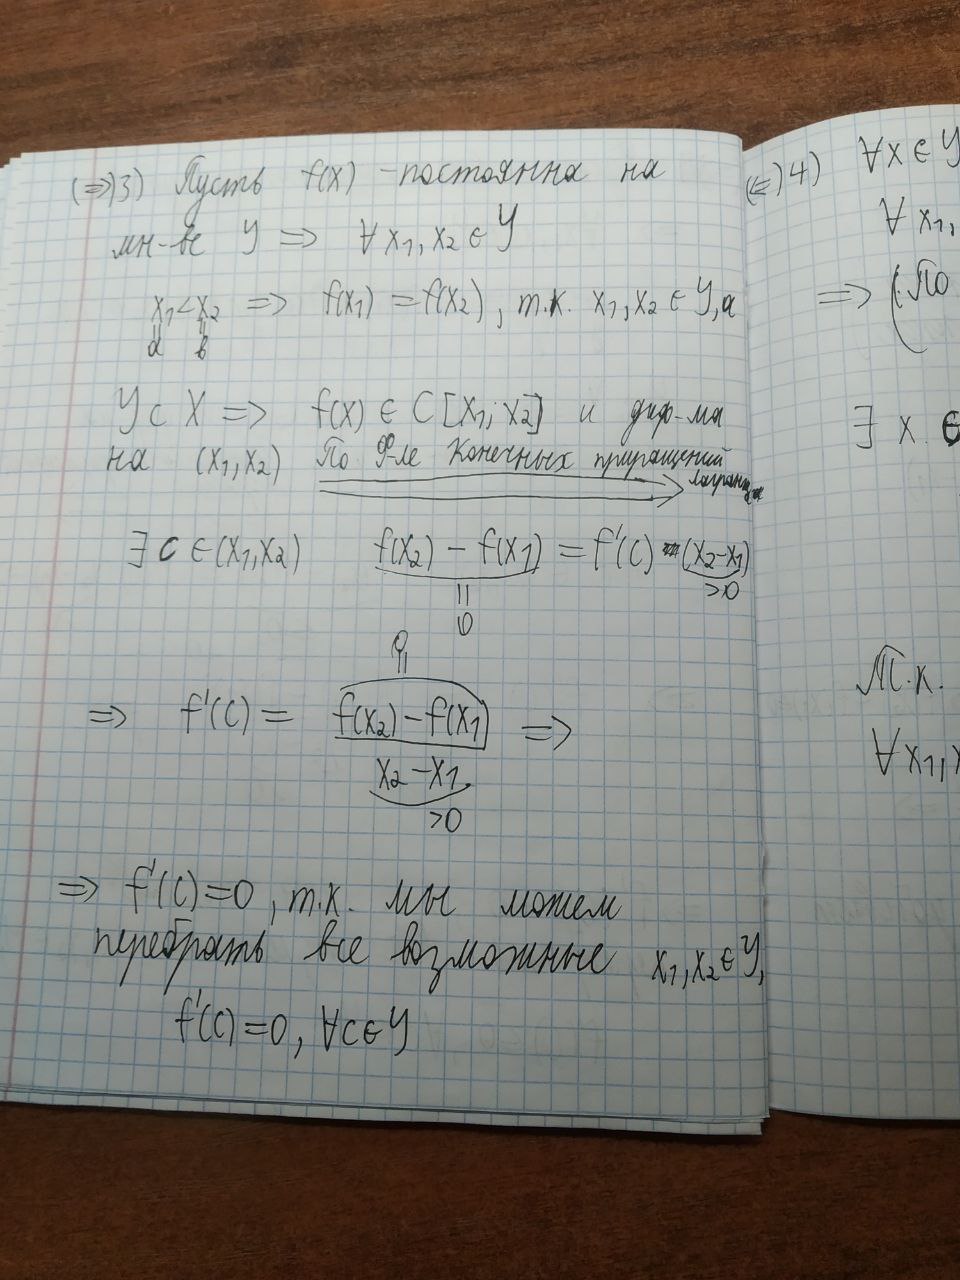 (⇒)3) Пусть f(x) - постоянна на
мн-ве Y ⇒ ∀ x₁, x₂ ∈ Y
x₁ < x₂ ⇒ f(x₁) = f(x₂), т.к. x₁, x₂ ∈ Y, а
= =
a b
Y ⊂ X ⇒ f(x) ∈ C [x₁; x₂] и диф-ма
на (x₁, x₂) По Ф-ле Конечных приращений
Лагранжа
∃ c ∈ (x₁, x₂) f(x₂) - f(x₁) = f'(c) (x₂-x₁)
= >0
0
0
=
⇒ f'(c) = f(x₂) - f(x₁) ⇒
x₂ - x₁
>0
⇒ f'(c)=0, т.к. мы можем
перебрать все возможные x₁, x₂ ∈ Y,
f'(c)=0, ∀c∈Y
(⇐)4) ∀x ∈ Y
∀ x₁,
⇒ (По
∃ x ∈
Т.к.
∀ x₁,